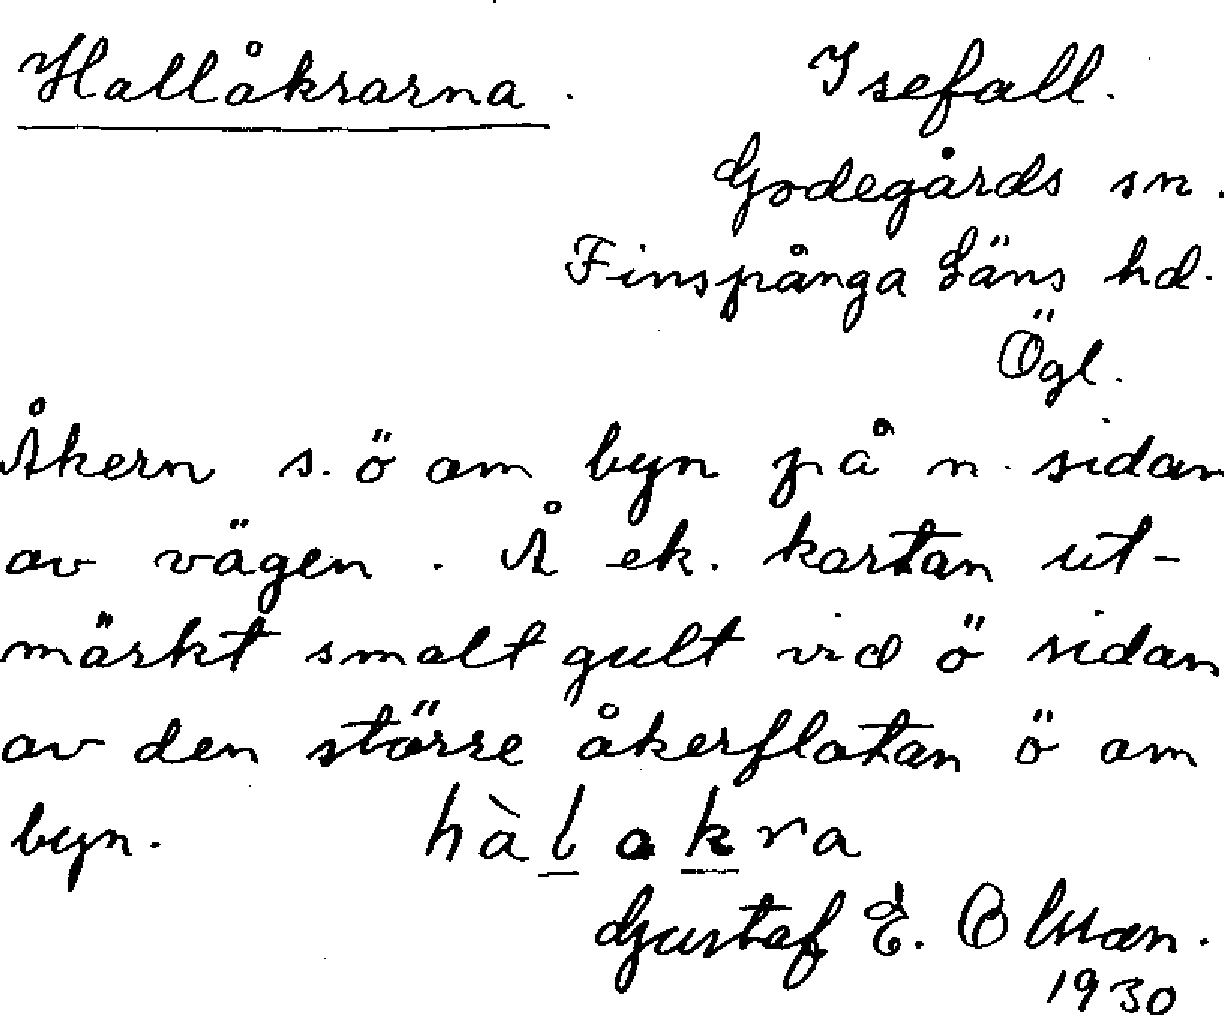 Hallåkrarna. Isefall.
Godegårds sn.
Finspånga Läns hd.
Ögl.
Åkern s. ö om byn på n. sidan
av vägen. Å ek. kartan ut-
märkt smalt gult vid ö sidan
av den större åkerflatan ö om
byn. hàlakra
Gustaf E. Olsson.
1930